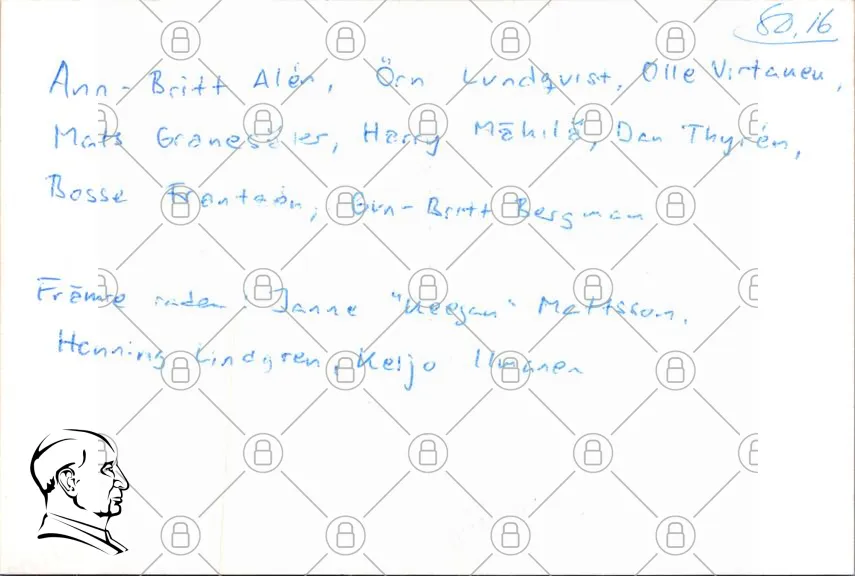 80.16
Ann-Britt Alén, Örn Lundqvist, Olle Virtanen,
Mats, Harry Mäkilä, Dan Thyrén,
Bosse Frantzén, Gun-Britt Bergman
Främre raden: Janne "Keegan" Mattsson,
Henning Lindgren, Keijo Ilmanen